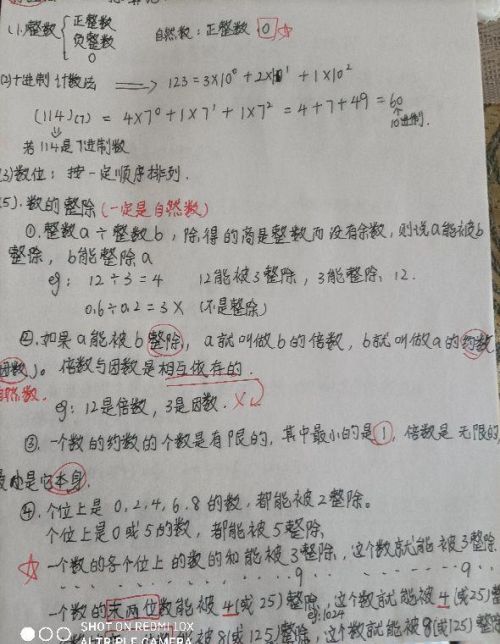 (1).整数 { 正整数 负整数 0    自然数：正整数 0 ☆
(2)十进制计数法 ⟹ 123=3×10⁰+2×10¹+1×10²
(114)(7) = 4×7⁰+1×7¹+1×7² = 4+7+49=60
10进制.
若114是7进制数
(3)数位：按一定顺序排列.
(5).数的整除(一定是自然数)
①.整数a÷整数b，除得的商是整数而没有余数，则说a能被b
整除，b能整除a
eg： 12÷3=4    12能被3整除，3能整除12.
0.6÷0.2=3 ×  (不是整除)
②.如果a能被b整除，a就叫做b的倍数，b就叫做a的约数
因数)。倍数与因数是相互依存的.
自然数.
eg：12是倍数，3是因数. ×
③.一个数的约数的个数是有限的，其中最小的是1，倍数是无限的
是它本身.
④.个位上是0,2,4,6,8的数，都能被2整除。
个位上是0或5的数，都能被5整除.
☆一个数的各个位上的数的和能被3整除，这个数就能被3整除
9 9
一个数的末两位数能被4(或25)整除，这个数就能被4(或25)整
eg:1024
被8(或125)整除，这个数就能被8(或125)整除
SHOT ON REDMI 10X
AI TRIPLE CAMERA